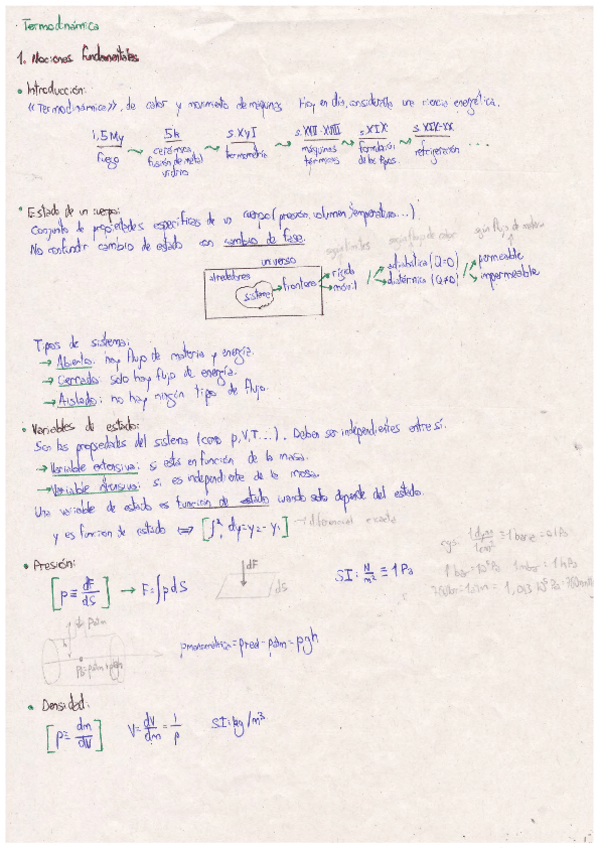 Termodinámica
1. Nociones fundamentales
• Introducción:
«Termodinámica», de calor y movimiento de máquinas. Hoy en día, considerada una ciencia energética.
1,5My fuego → 5k cerámica, fusión de metal, vidrio → s.XVI termometría → s.XVII-XVIII máquinas térmicas → s.XIX formulación de los tipos. → s.XIX-XX refrigeración ...
• Estado de un cuerpo:
Conjunto de propiedades específicas de un cuerpo (presión, volumen, temperatura...).
No confundir cambio de estado con cambio de fase.
según flujo de calor según flujo de materia
universo
alrededores
sistema → frontera → rígida / móvil / adiabática (Q=0) / diatérmica (Q≠0) / permeable / impermeable
Tipos de sistema:
→ Abierto: hay flujo de materia y energía.
→ Cerrado: solo hay flujo de energía.
→ Aislado: no hay ningún tipo de flujo.
• Variables de estado:
Son las propiedades del sistema (como p,V,T...). Deben ser independientes entre sí.
→ Variable extensiva: si está en función de la masa.
→ Variable intensiva: si es independiente de la masa.
Una variable de estado es función de estado cuando solo depende del estado.
y es funcion de estado ⟺ [∫₁² dy = y₂ - y₁] → diferencial exacta
• Presión:
cgs: 1 dyn/1cm² ≡ 1 barye = 0,1 Pa
[p ≡ dF/dS] → F = ∫p dS
dF
dS
SI: N/m² ≡ 1 Pa
1 bar = 10⁵ Pa 1 mbar = 1 hPa
= 1,013·10⁵ Pa = 760mmHg
patm
h
p = patm + ρgh
pmanométrica = pred - patm = ρgh
• Densidad:
[ρ ≡ dm/dV] V = dV/dm = 1/ρ SI: kg/m³